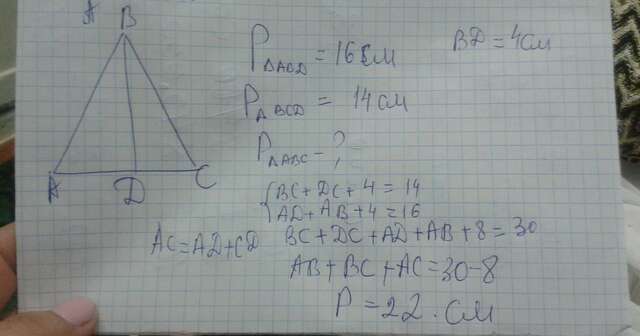 A B
P△ABD = 16см
BD = 4см
P△BCD = 14см
P△ABC - ?
A D C
{BC + DC + 4 = 14
AD + AB + 4 = 16
AC = AD + CD
BC + DC + AD + AB + 8 = 30
AB + BC + AC = 30 - 8
P = 22 . см